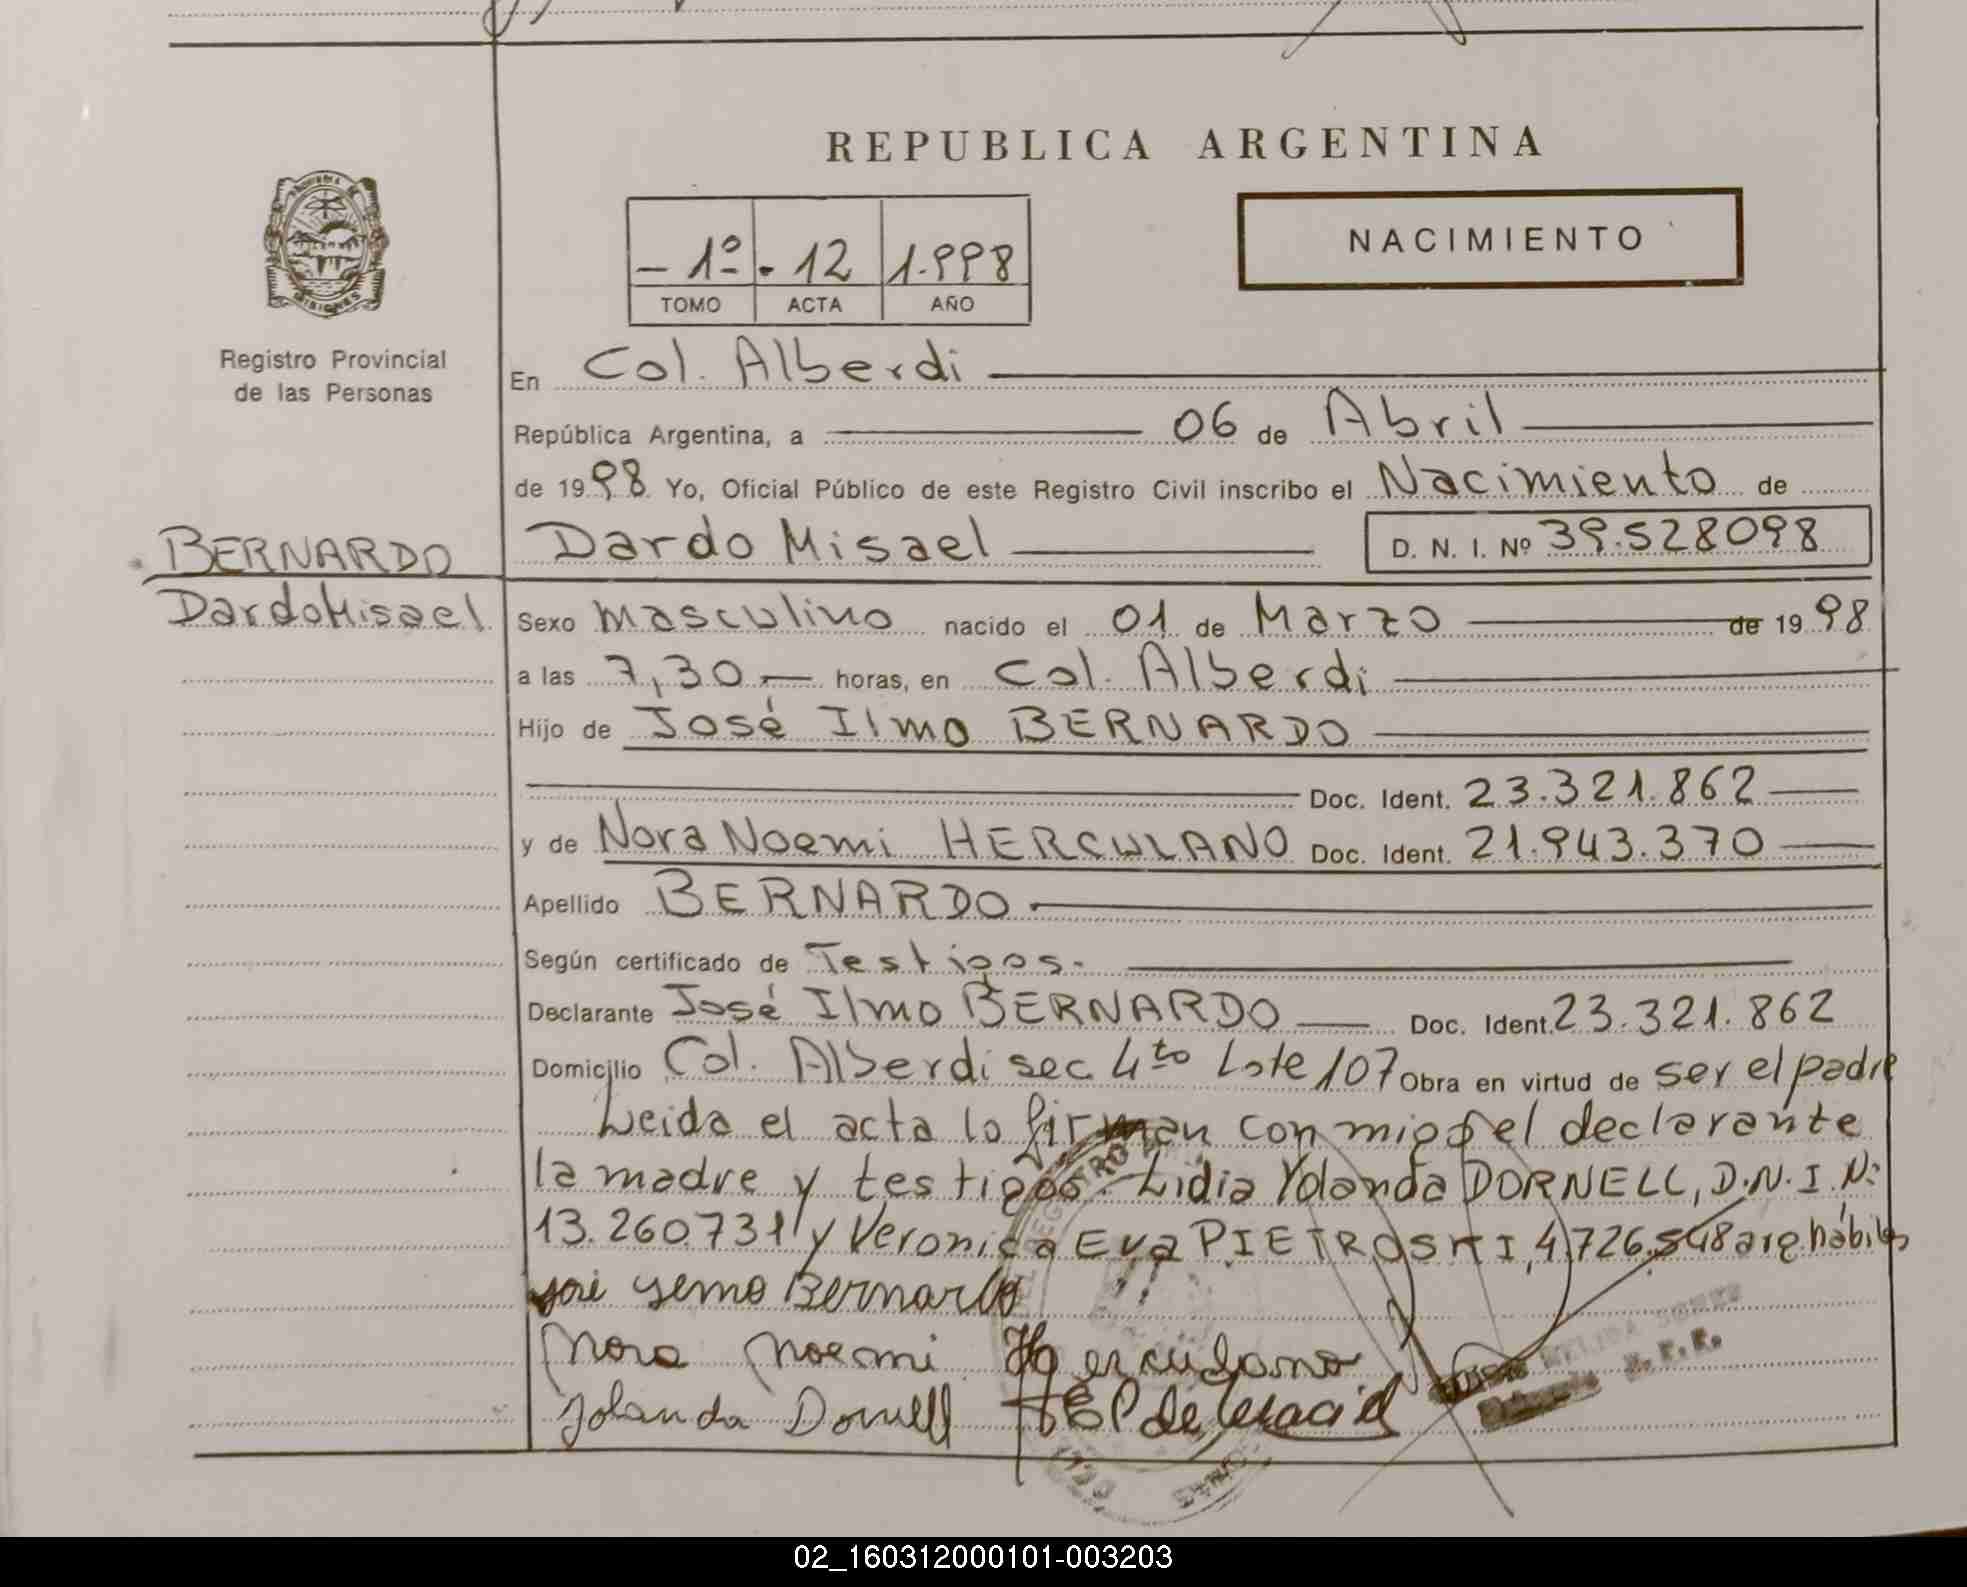 REPUBLICA ARGENTINA
- 1º - . 12 1.998
TOMO ACTA AÑO
NACIMIENTO
PROVINCIA DE
MISIONES
Registro Provincial
de las Personas
En Col. Alberdi
República Argentina, a 06 de Abril
de 1998 Yo, Oficial Público de este Registro Civil inscribo el Nacimiento de
BERNARDO
Dardo Misael
Dardo Misael D. N. I. Nº 39.528098
Sexo masculino nacido el 01 de Marzo de 1998
a las 7,30 horas, en Col. Alberdi
Hijo de José Ilmo BERNARDO
Doc. Ident. 23.321.862
y de Nora Noemi HERCULANO Doc. Ident. 21.943.370
Apellido BERNARDO
Según certificado de Testigos.
Declarante José Ilmo BERNARDO Doc. Ident. 23.321.862
Domicilio Col. Alberdi sec 4to Lote 107 Obra en virtud de ser el padre
Leida el acta lo firman conmigo el declarante
la madre y testigos. Lidia Yolanda DORNELL, D.N.I.N:
13.260731 y Veronica Eva PIETROSKI, 4.726.548 arg. hábiles
José Bernardo
Nora Noemi Herculano
Yolanda Dornell
02_160312000101-003203